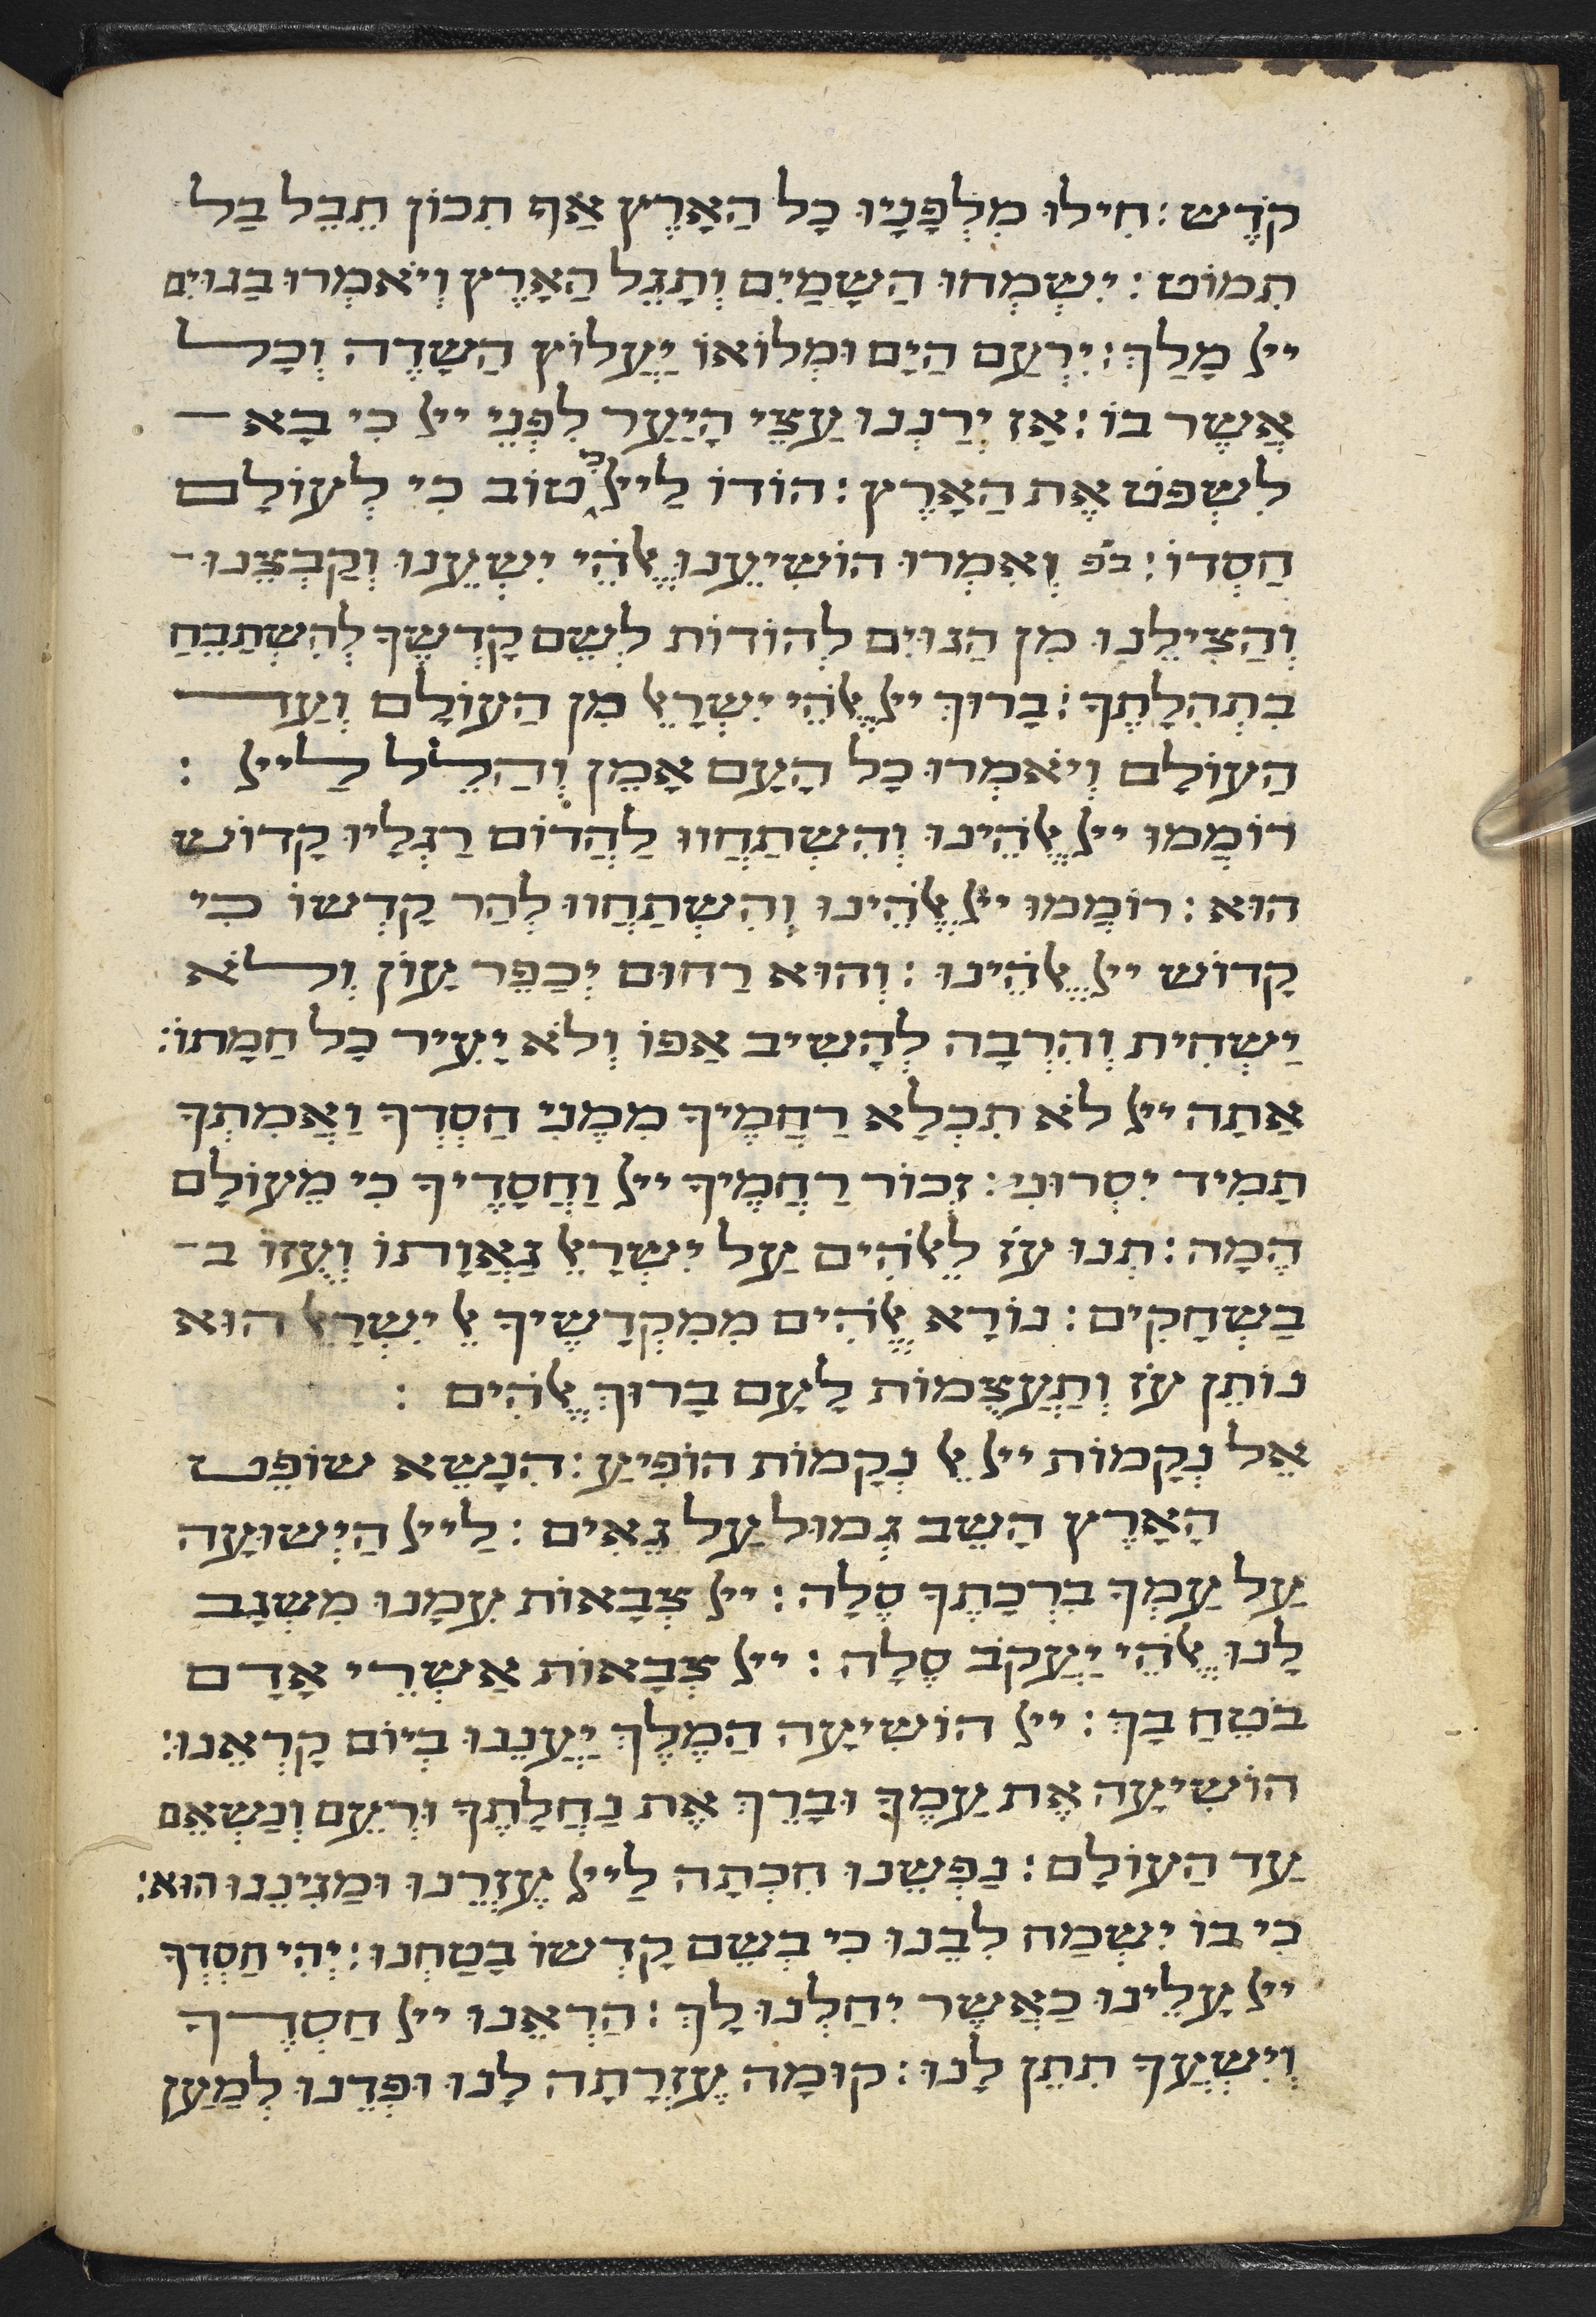 קֹדֶש: חִילוּ מִלְפָנָיו כָל הָאָרֶץ אַף תִכוֹן תֵבֵל בַל
תִמוֹט: יִשְמְחוּ הַשָמַיִם וְתָגֵל הָאָרֶץ וְיֹאמְרוּ בַגוֹיִם
יי מָלָךְ: יִרְעַם הַיָם וּמְלוֹאוֹ יַעֲלוֹץ הַשָדֶה וְכָל
אֲשֶר בוֹ: אָז יְרַנְנוּ עַצֵי הָיַעַר לִפְנֵי יי כִי בָא
לִשְפֹט אֶת הָאָרֶץ: הוֹדוֹ לַיי כִי טוֹב כִי לְעוֹלָם
חַסְדוֹ: בפ וְאִמְרוּ הוֹשִיעֵנוּ אֱלֹהֵי יִשְעֵנוּ וְקַבְצֵנוּ
וְהַצִילֵנוּ מִן הַגוֹיִם לְהוֹדוֹת לְשֵם קָדְשֶךָ לְהִשְתַבֵחַ
בִתְהִלָתֶךָ: בָרוּךְ יי אֱלֹהֵי יִשְרָאֵל מִן הָעוֹלָם וְעַד
הָעוֹלָם וְיֹאמְרוּ כָל הָעָם אָמֵן וְהַלֵל לַיי:
רוֹמְמוּ יי אֱלֹהֵינוּ וְהִשְתַחֲווּ לַהֲדוֹם רַגְלָיו קָדוֹש
הוּא: רוֹמְמוּ יי אֱלֹהֵינוּ וְהִשְתַחֲווּ לְהַר קָדְשוֹ כִי
קָדוֹש יי אֱלֹהֵינוּ: וְהוּא רַחוּם יְכַפֵר עָוֹן וְלֹא
יַשְחִית וְהִרְבָה לְהָשִיב אַפוֹ וְלֹא יָעִיר כָל חֲמָתוֹ:
אַתָה יי לֹא תִכְלָא רַחֲמֶיךָ מִמֶנִי חַסְדְךָ וַאֲמִתְךָ
תָמִיד יִסְרוּנִי: זְכוֹר רַחֲמֶיךָ יי וַחֲסָדֶיךָ כִי מֵעוֹלָם
הֶמָה: תְנוּ עֹז לֵאלֹהִים עַל יִשְרָאֵל גַאֲוָתוֹ וְעֻזוֹ ב
בַשְחָקִים: נוֹרָא אֱלֹהִים מִמִקְדָשֶיךָ אֵל יִשְרָאֵל הוּא
נוֹתֵן עֹז וְתַעֲצֻמוֹת לָעָם בָרוּךְ אֱלֹהִים:
אֵל נְקָמוֹת יי אֵל נְקָמוֹת הוֹפִיעַ: הִנָשֵא שוֹפֵט
הָאָרֶץ הָשֵב גְמוּל עַל גֵאִים: לַיי הַיְשוּעָה
עַל עַמְךָ בִרְכָתֶךָ סֶלָה: יי צְבָאוֹת עִמָנוּ מִשְגָב
לָנוּ אֱלֹהֵי יַעֲקֹב סֶלָה: יי צְבָאוֹת אַשְרֵי אָדָם
בֹטֵחַ בָךְ: יי הוֹשִיעָה הַמֶלֶךְ יַעֲנֵנוּ בְיוֹם קָרְאֵנוּ:
הוֹשִיעָה אֶת עַמֶךָ וּבָרֵךְ אֶת נַחֲלָתֶךָ וּרְעֵם וְנַשְאֵם
עַד הָעוֹלָם: נַפְשֵנוּ חִכְתָה לַיי עֶזְרֵנוּ וּמַגִינֵנוּ הוּא:
כִי בוֹ יִשְמַח לִבֵנוּ כִי בְשֵם קָדְשוֹ בָטַחְנוּ: יְהִי חַסְדְךָ
יי עָלֵינוּ כַאֲשֶר יִחַלְנוּ לָךְ: הַרְאֵנוּ יי חַסְדֶךָ
וְיִשְעֲךָ תִתֵן לָנוּ: קוּמָה עֶזְרָתָה לָנוּ וּפְדֵנוּ לְמַעַן